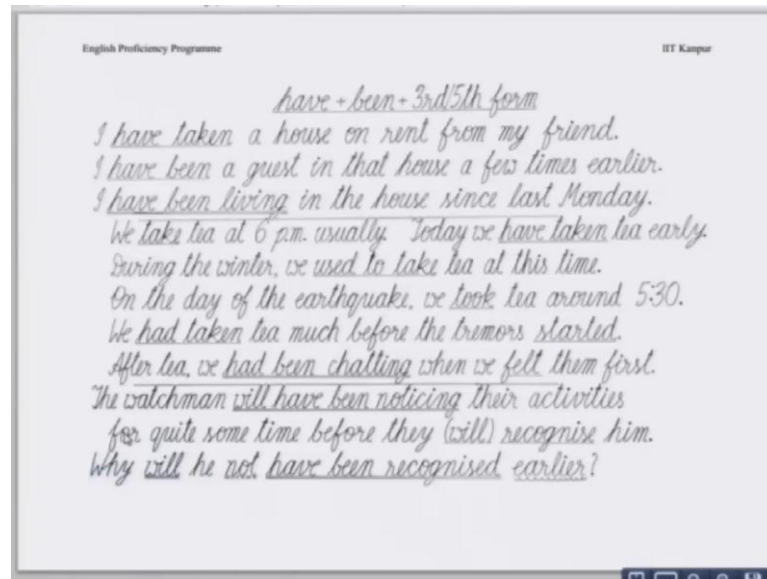 English Proficiency Programme IIT Kanpur
have + been + 3rd/5th form
I have taken a house on rent from my friend.
I have been a guest in that house a few times earlier.
I have been living in the house since last Monday.
We take tea at 6 p.m. usually. Today we have taken tea early.
During the winter, we used to take tea at this time.
On the day of the earthquake, we took tea around 5:30.
We had taken tea much before the tremors started.
After tea, we had been chatting when we felt them first.
The watchman will have been noticing their activities
for quite some time before they (will) recognise him.
Why will he not have been recognised earlier?